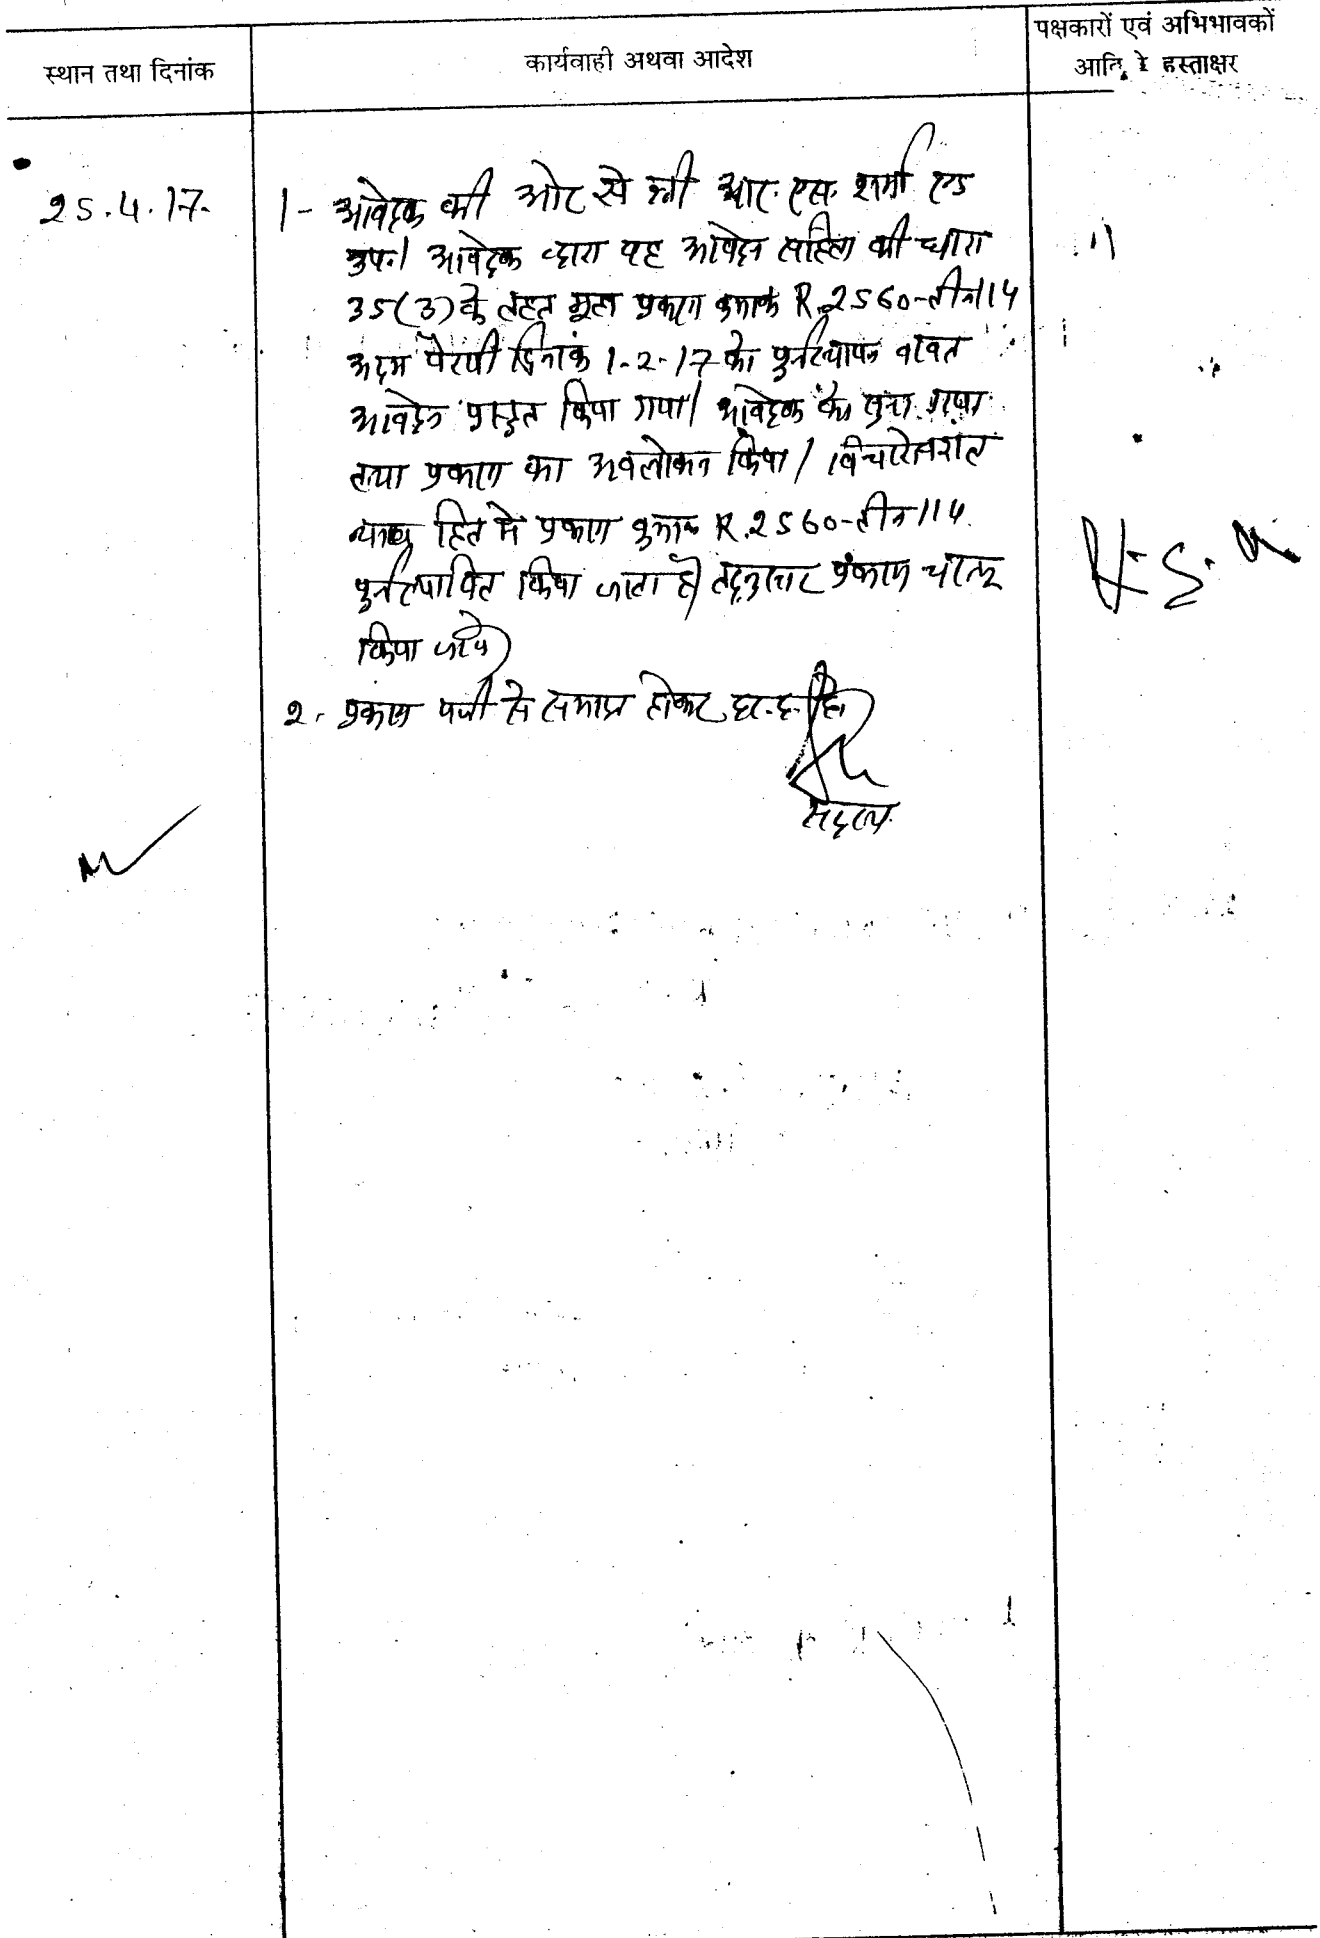 स्थान तथा दिनांक
कार्यवाही अथवा आदेश
पक्षकारों एवं अभिभावकों
आदि के हस्ताक्षर
25.4.17.
1- आवेदक की ओर से श्री आर. एस. शर्मा एड
उप.। आवेदक द्वारा यह आवेदन संहिता की धारा
35(3) के तहत मूल प्रकरण क्रमांक R.2560-तीन/14
अदम पैरवी दिनांक 1-2-17 को पुर्नस्थापन बावत
आवेदन प्रस्तुत किया गया। आवेदक को सुना गया
तथा प्रकरण का अवलोकन किया। विचारोपरांत
न्याय हित मे प्रकरण क्रमांक R.2560-तीन/14
पुर्नस्थापित किया जाता है। तद्नुसार प्रकरण चालू
किया जाये।
2. प्रकरण पंजी से समाप्त होकर द.द. हो।
सदस्य